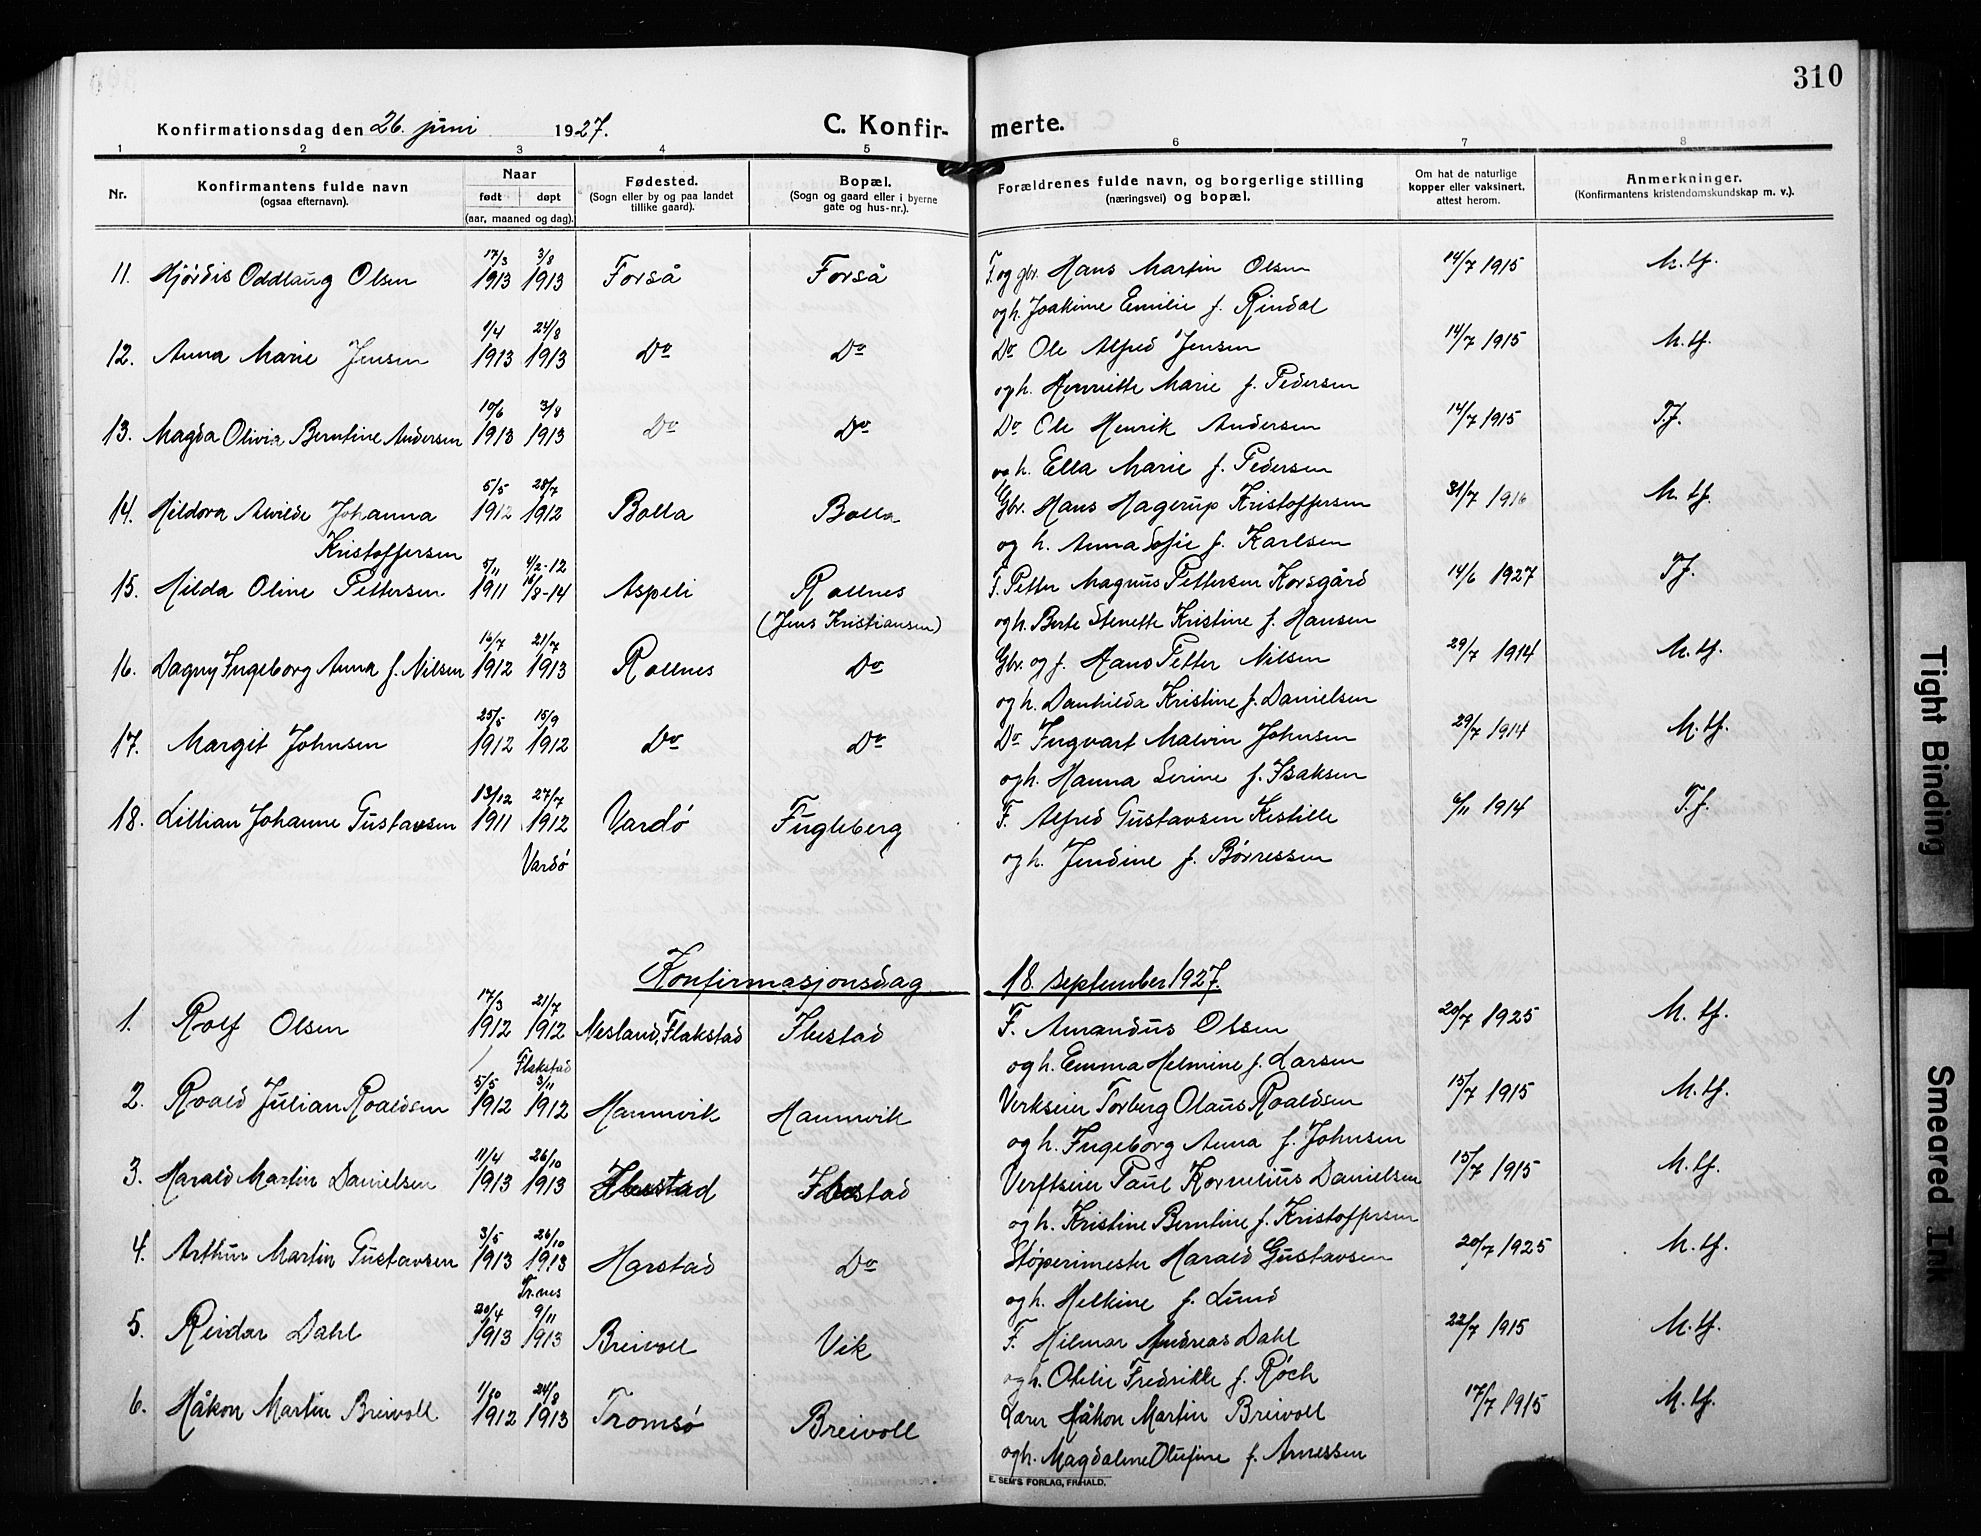 310
Konfirmationsdag den 26. juni 1927. C. Konfir- merte.
1 2 3 4 5 6 7 8
Nr. Konfirmantens fulde navn (ogsaa efternavn). Naar født døpt (aar, maaned og dag). Fødested. (Sogn eller by og paa landet tillike gaard). Bopæl. (Sogn og gaard eller i byerne gate og hus-nr.). Forældrenes fulde navn, og borgerlige stilling (næringsvei) og bopæl. Om hat de naturlige kopper eller vaksinert, attest herom. Anmerkninger. (Konfirmantens kristendomskundskap m. v.).
11. Hjördis Oddlaug Olsen 17/3 1913 3/8 1913 Forså Forså F. og gbr. Hans Martin Olsen 14/7 1915 M. tf.
og h. Joakime Emilie f. Rindal
12. Anna Marie Jensen 1/4 1913 24/8 1913 Do Do Do Ole Alfred Jensen 14/7 1915 M. tf.
og h. Henriette Marie f. Pedersen
13. Magda Olivia Berntine Andersen 10/6 1913 3/8 1913 Do Do Do Ole Henrik Andersen 14/7 1915 T.f.
og h. Ella Marie f. Pedersen
14. Hildora Alvilde Johanna 5/5 1912 28/7 1912 Bolla Bolla Gbr. Hans Hagerup Kristoffersen 31/7 1916 M. tf.
Kristoffersen og h. Anna Sofie f. Karlsen
15. Hilda Oline Pettersen 5/11 1911 4/2-12 16/8-14 Aspeli Rollnes F. Petter Magnus Pettersen Korsgård 14/6 1927 T.f.
(Jens Kristiansen) og h. Berte Stenette Kristine f. Hansen
16. Dagny Ingeborg Anna f. Nilsen 16/7 1912 21/7 1913 Rollnes Do Gbr. og f. Hans Petter Nilsen 29/7 1914 M. tf.
og h. Danhilda Kristine f. Danielsen
17. Margit Johnsen 25/5 1912 15/9 1912 Do Do Do Ingvart Malvin Johnsen 29/7 1914 M. tf.
og h. Hanna Serine f. Isaksen
18. Lillian Johanne Gustavsen 13/12 1911 27/7 1912 Vardö Fugleberg F. Alfred Gustavsen Kestille 6/11 1914 T.f.
Vardö og h. Jendine f. Börressen
Konfirmasjonsdag 18. september 1927.
1. Rolf Olsen 17/3 1912 21/7 1912 Nesland, Flakstad Ibestad F. Amandus Olsen 20/7 1925 M. tf.
Flakstad og h. Emma Helmine f. Larsen
2. Roald Julian Roaldsen 5/5 1912 3/11 1912 Hamnvik Hamnvik Verkseier Torberg Olaus Roaldsen 15/7 1915 M. tf.
og h. Ingeborg Anna f. Johnsen
3. Harald Martin Danielsen 11/4 1913 26/10 1913 Ibestad Ibestad Verftseier Paul Kornelius Danielsen 15/7 1915 M. tf.
og h. Kristine Berntine f. Kristoffersen
4. Arthur Martin Gustavsen 3/5 1913 26/10 1913 Harstad Do Støperimester Harald Gustavsen 20/7 1925 M. tf.
Tr.nes og h. Helkine f. Lund
5. Reidar Dahl 20/4 1913 9/11 1913 Breivoll Vik F. Hilmar Andreas Dahl 22/7 1915 M. tf.
og h. Otelie Fredrikke f. Röch
6. Håkon Martin Breivoll 1/10 1912 24/8 1913 Tromsö Breivoll Lærer Håkon Martin Breivoll 17/7 1915 M. tf.
og h. Magdalene Olufine f. Arnessen
E. SEM'S FORLAG, FR.HALD.
Tight Binding
Smeared Ink